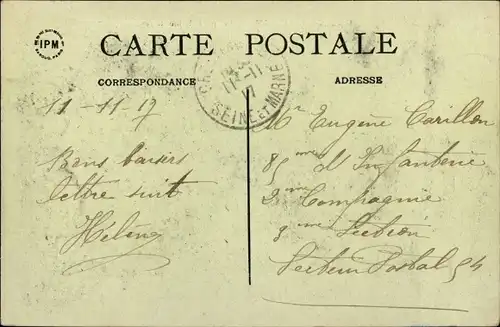 IPM
CARTE POSTALE
CORRESPONDANCE
ADRESSE
SEINE ET MARNE
11-11-17
Bons baisers
lettre suit
Hélène
Mr Eugène Carillon
85me d'Infanterie
2me Compagnie
3me Section
Secteur Postal 54